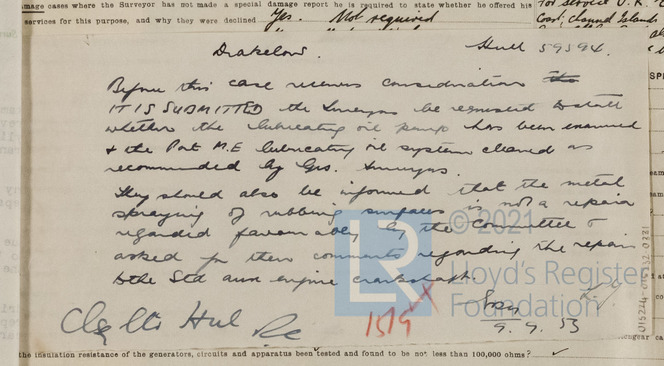 amage cases where the Surveyor has not made a special damage report he is required to state whether he offered his
services for this purpose, and why they were declined Yes. Not required
For service U.K.
Coast, Channel Islands
Drakelow. Hull 59394.
Before this case receives consideration
IT IS SUBMITTED the Surveyors be requested to state
whether the lubricating oil pump has been examined
& the Port M.E lubricating oil system cleaned as
recommended by Grs. Surveyors.
They should also be informed that the metal
spraying of rubbing surfaces is not a repair
regarded favourably by the Committee &
asked for their comments regarding the repair
to the Stb aux engine crankshaft
© 2021
LR
Lloyd's Register
Foundation
Hul
1519 X
9. 9. 53
the insulation resistance of the generators, circuits and apparatus been tested and found to be not less than 100,000 ohms? ✓